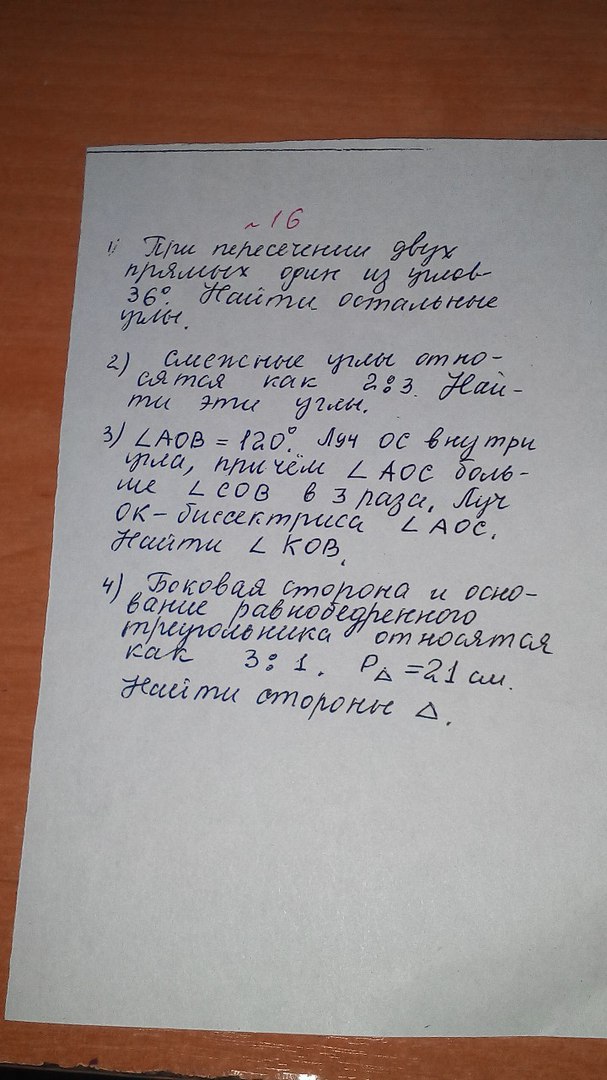 ~16
1) При пересечении двух
прямых один из углов
36°. Найти остальные
углы.
2) Смежные углы отно-
сятся как 2:3. Най-
ти эти углы.
3) ∠AOB = 120°. Луч OC внутри
угла, причём ∠AOC боль-
ше ∠COB в 3 раза. Луч
OK - биссектриса ∠AOC.
Найти ∠KOB.
4) Боковая сторона и осно-
вание равнобедренного
треугольника относятся
как 3:1. P△ = 21 см.
Найти стороны △.